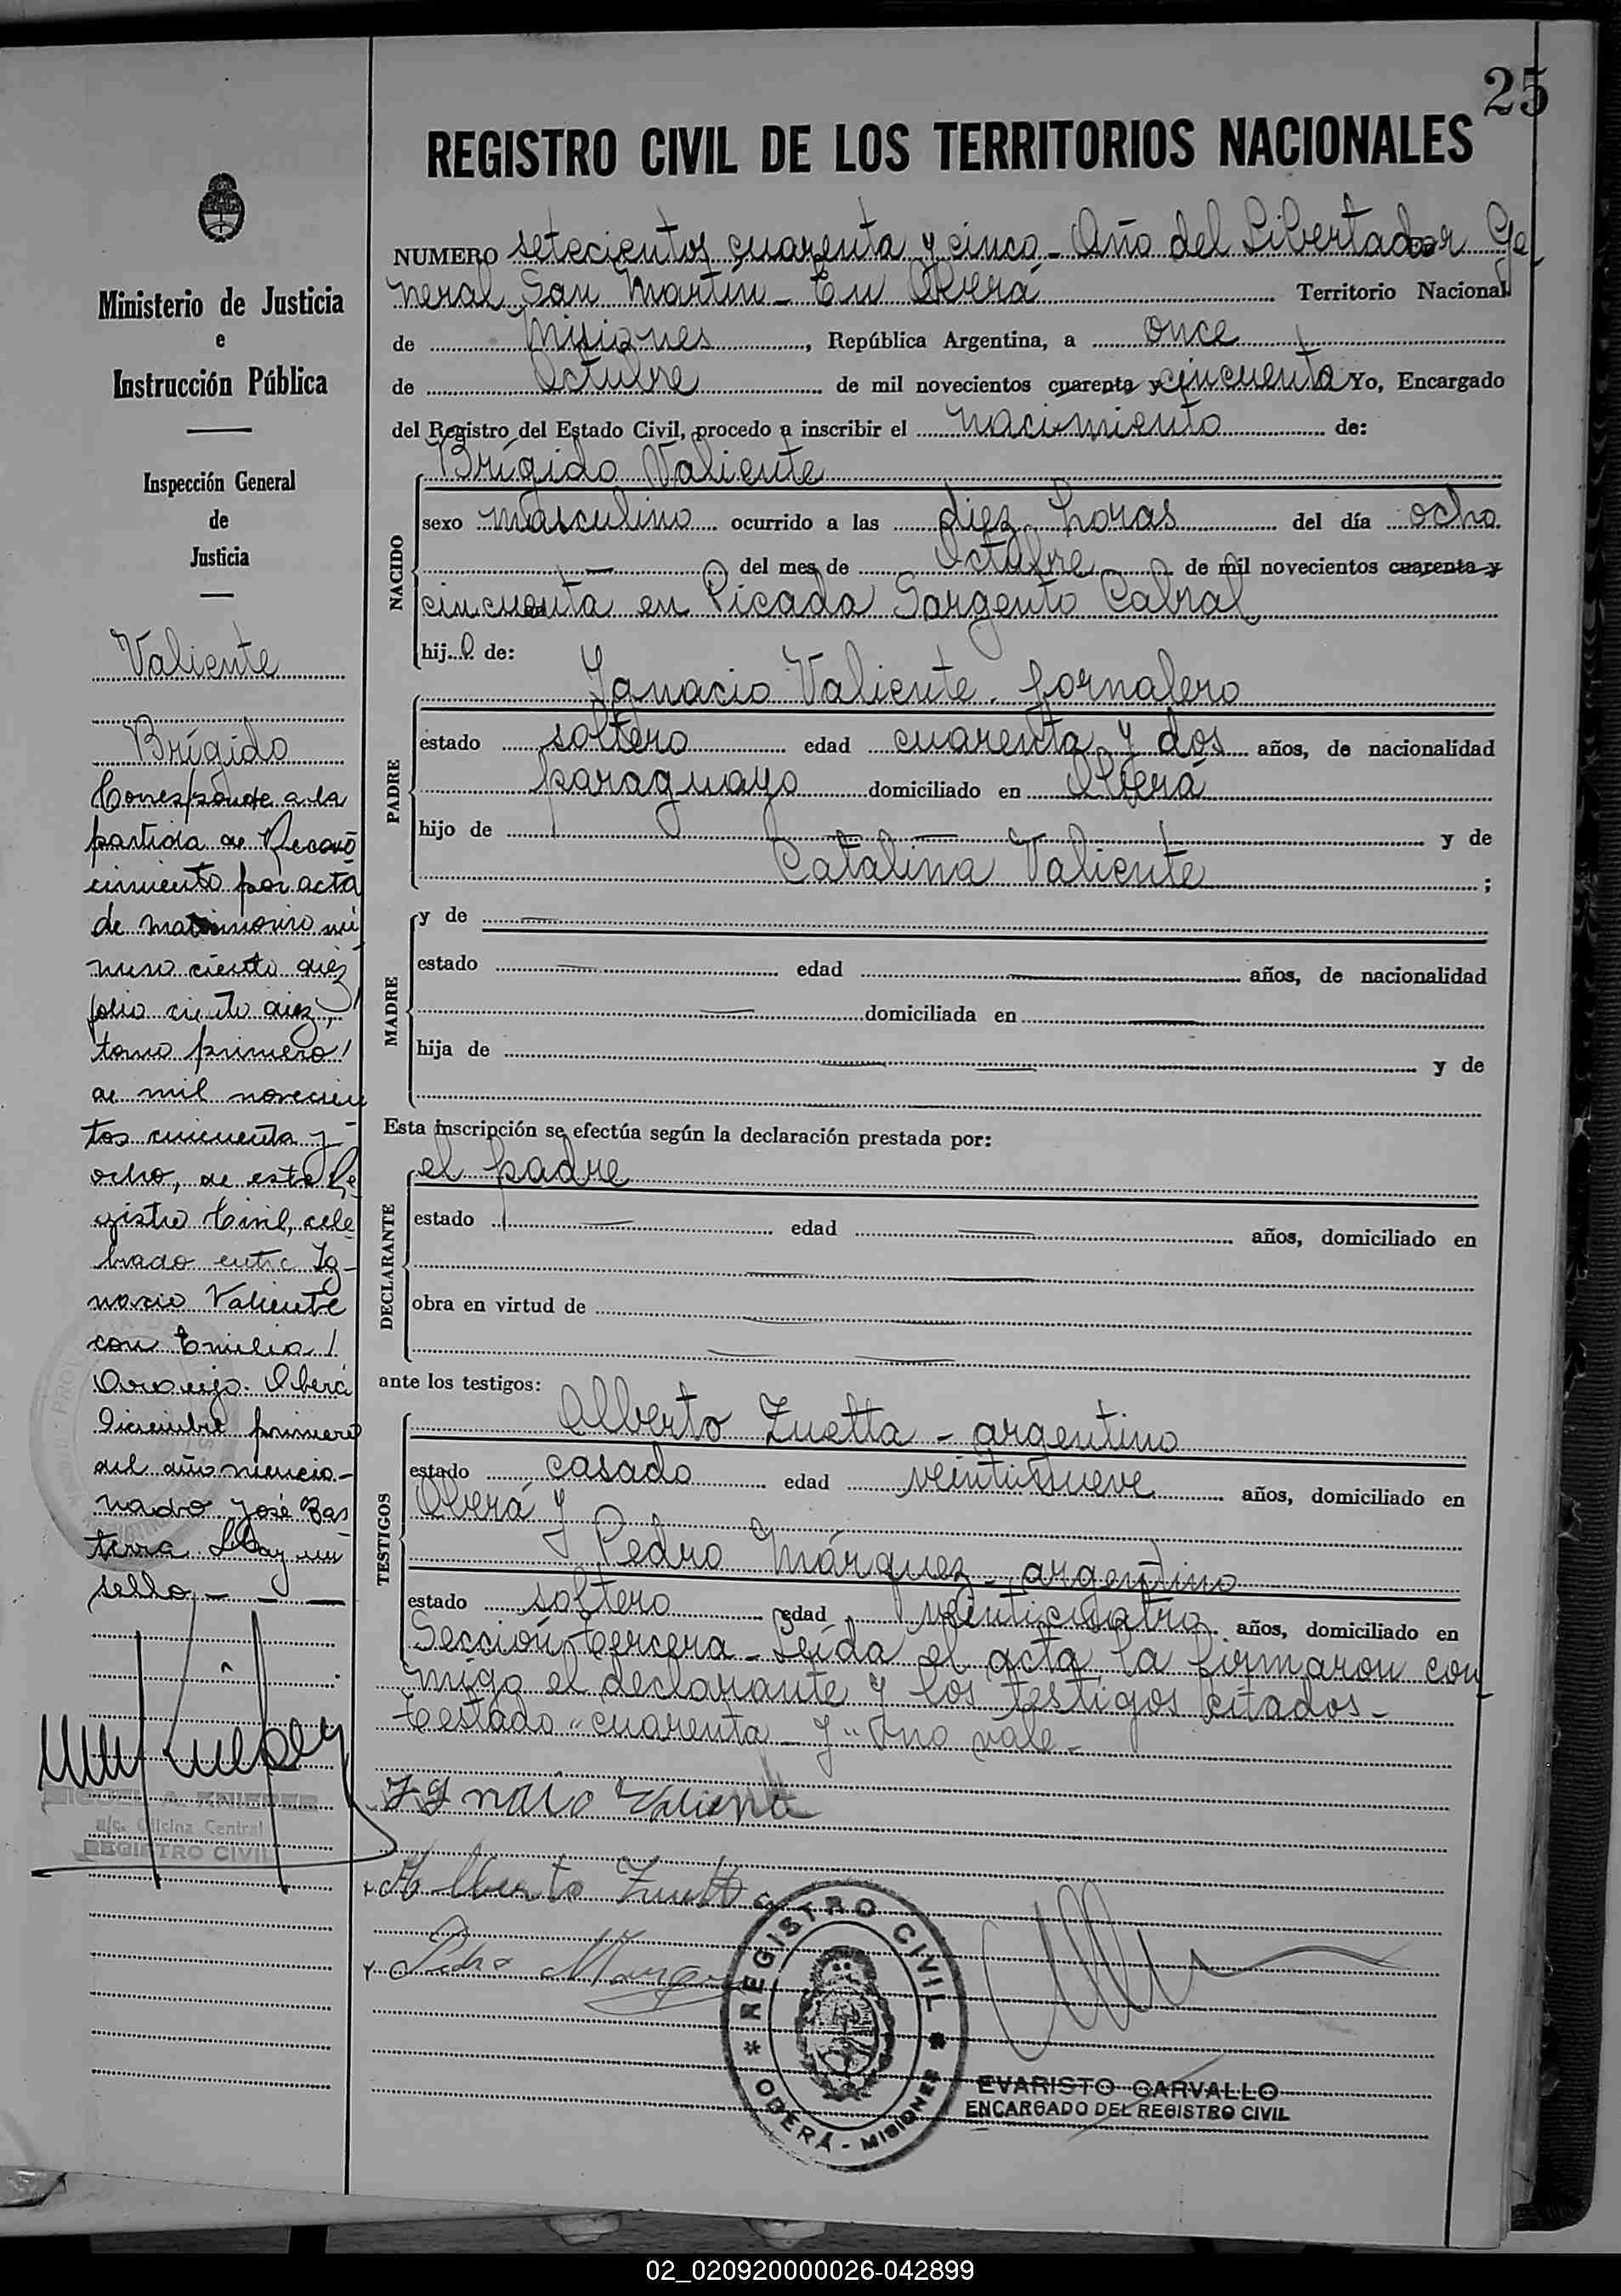 25
REGISTRO CIVIL DE LOS TERRITORIOS NACIONALES
NUMERO setecientos cuarenta y cinco - Año del Libertador Ge
neral San Martín - En Oberá Territorio Nacional
de Misiones, República Argentina, a once
de Octubre de mil novecientos cuarenta y cincuenta Yo, Encargado
del Registro del Estado Civil, procedo a inscribir el nacimiento de:
NACIDO
Brígido Valiente
sexo masculino ocurrido a las diez horas del día ocho
del mes de Octubre de mil novecientos cuarenta y
cincuenta en Picada Sargento Cabral
hijo de:
PADRE
Ignacio Valiente - jornalero
estado soltero edad cuarenta y dos años, de nacionalidad
paraguayo domiciliado en Oberá
hijo de — y de
Catalina Valiente ;
MADRE
y de —
estado — edad — años, de nacionalidad
— domiciliada en —
hija de — y de
Esta inscripción se efectúa según la declaración prestada por:
DECLARANTE
el padre
estado — edad — años, domiciliado en
—
obra en virtud de —
—
ante los testigos:
TESTIGOS
Alberto Zuetta - argentino
estado casado edad veintinueve años, domiciliado en
Oberá y
Pedro Márquez - argentino
estado soltero edad veinticuatro años, domiciliado en
Sección tercera - Leída el acta la firmaron con
migo el declarante y los testigos citados -
testado "cuarenta - y" no vale -
Ignacio Valiente
Alberto Zuetta
Pedro Marquez
REGISTRO CIVIL
OBERÁ - MISIONES
EVARISTO CARVALLO
ENCARGADO DEL REGISTRO CIVIL
Ministerio de Justicia
e
Instrucción Pública
Inspección General
de
Justicia
Valiente
Brígido
Corresponde a la
partida de Recono
cimiento por acta
de matrimonio nú
mero ciento diez
folio ciento diez,
tomo primero
de mil novecien
tos cincuenta y
ocho, de este Re
gistro Civil, cele
brado entre Ig-
nacio Valiente
con Emilia
Araujo. Oberá
Diciembre primero
del año mencio-
nado José Bas
terra Hay un
sello -
MIGUEL A. KNIEPER
a/c. Oficina Central
REGISTRO CIVIL
02_020920000026-042899